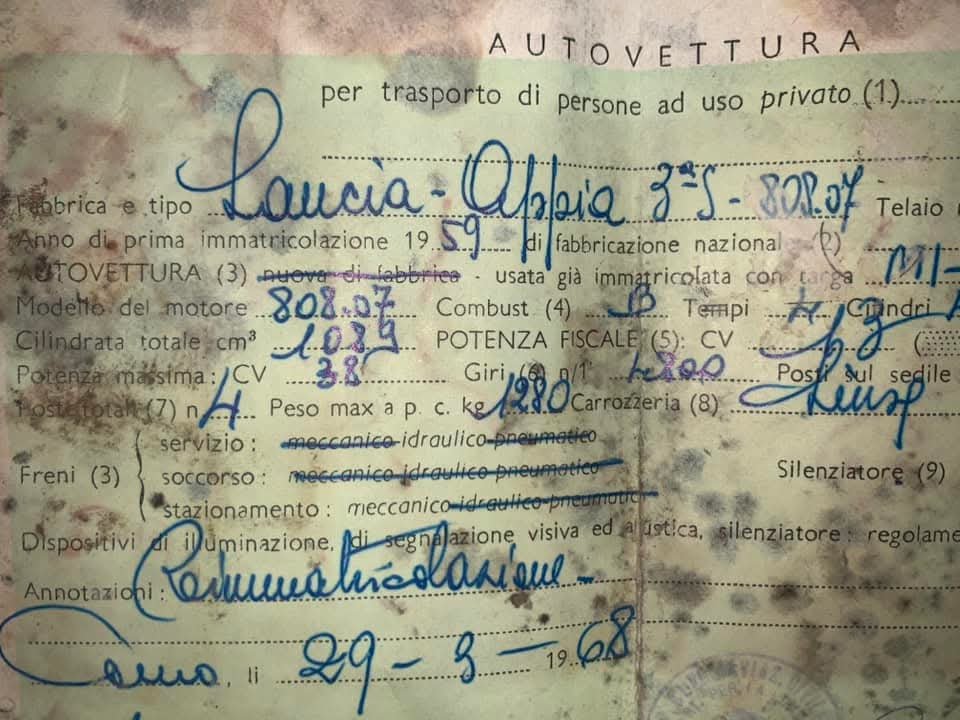 AUTOVETTURA
per trasporto di persone ad uso privato (1)
Fabbrica e tipo Lancia - Appia 3ªS - 808.07 Telaio
Anno di prima immatricolazione 19 59 di fabbricazione nazional (2)
AUTOVETTURA (3) nuova di fabbrica - usata già immatricolata con targa MI-
Modello del motore 808.07 Combust (4) B Tempi 4 Cilindri
Cilindrata totale cm³ 1089 POTENZA FISCALE (5): CV 13 (
Potenza massima: CV 38 Giri (6) n/1' 4800 Posti sul sedile
Posti totali (7) n 4 Peso max a p. c. kg 1280 Carrozzeria (8)
servizio: meccanico-idraulico-pneumatico
Freni (3) soccorso: meccanico-idraulico-pneumatico Silenziatore (9)
stazionamento: meccanico-idraulico-pneumatico
Dispositivi di illuminazione, di segnalazione visiva ed acustica, silenziatore: regolame
Annotazioni: Reimmatricolazione -
Como, li 29-3-1968